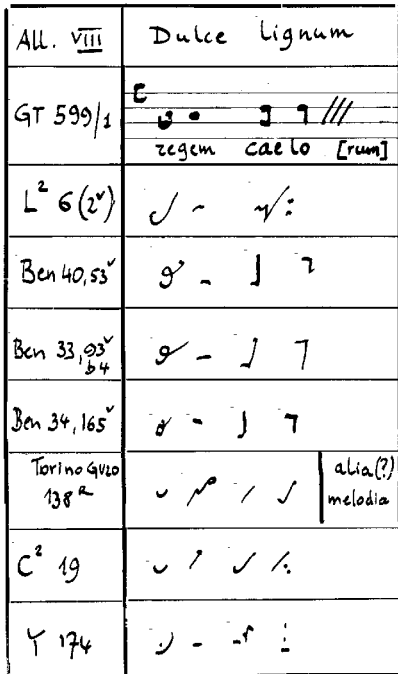 All. VIII Dulce lignum
GT 599/1
regem caelo [rum]
L² 6 (2ᵛ)
Ben 40,53ᵛ
Ben 33,93ᵛ
b4
Ben 34,165ᵛ
Torino GV20
138ᴿ
alia(?)
melodia
C² 19
Y 174